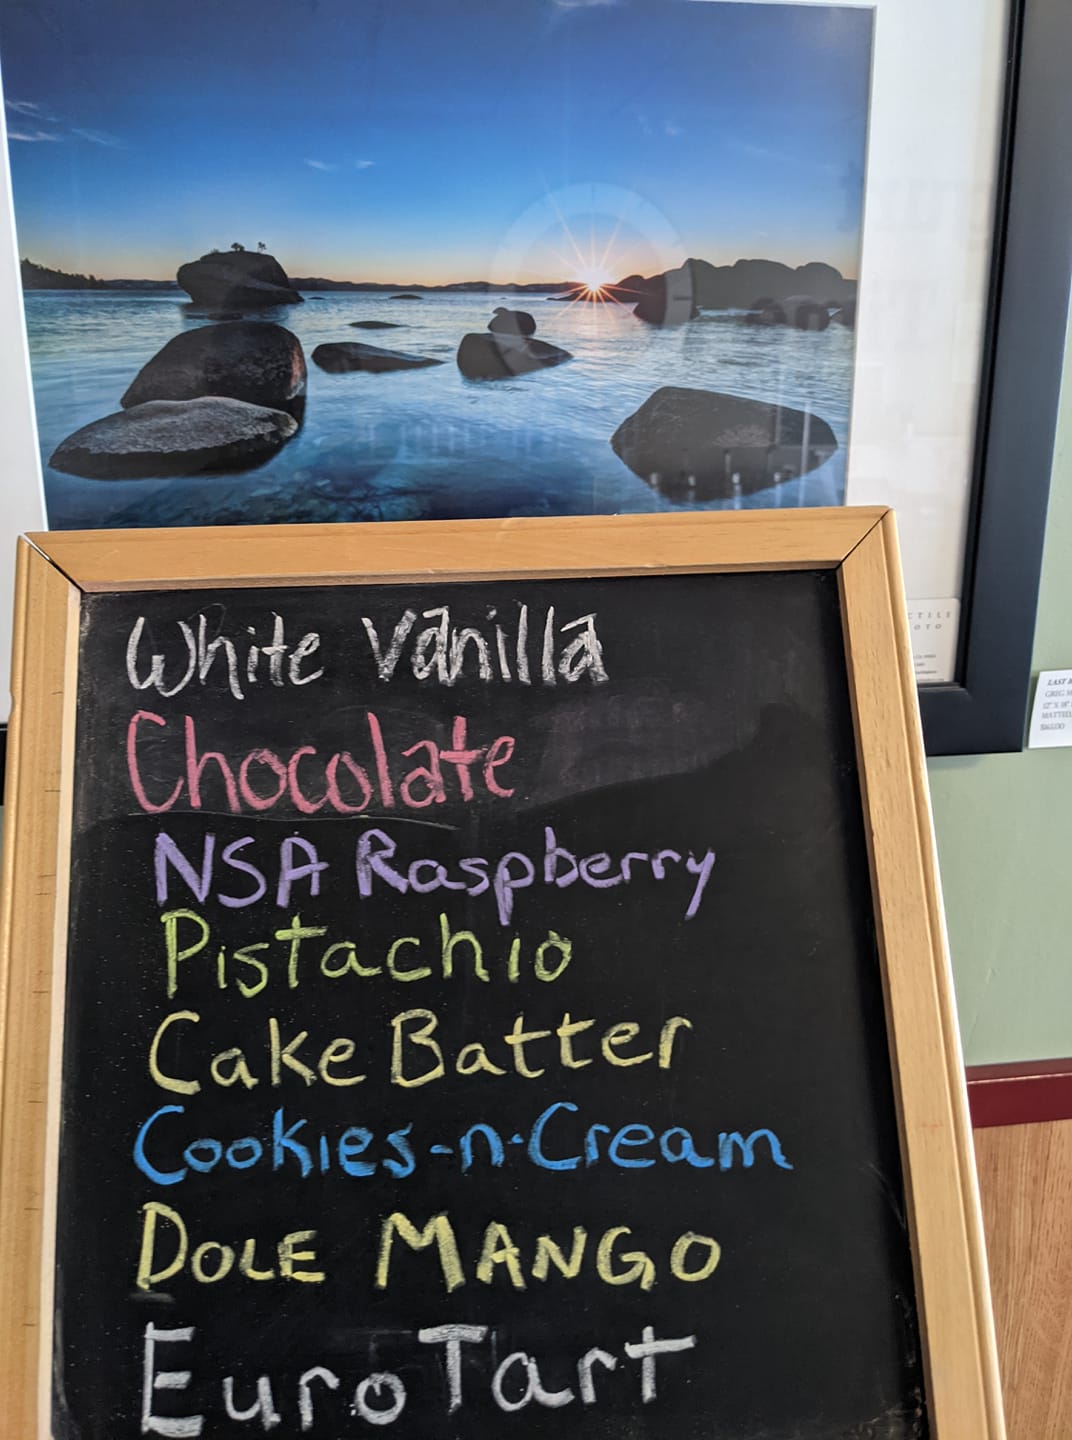 White Vanilla
Chocolate
NSA Raspberry
Pistachio
Cake Batter
Cookies-n-Cream
DOLE MANGO
Euro Tart
LAST
GREG
MATTED